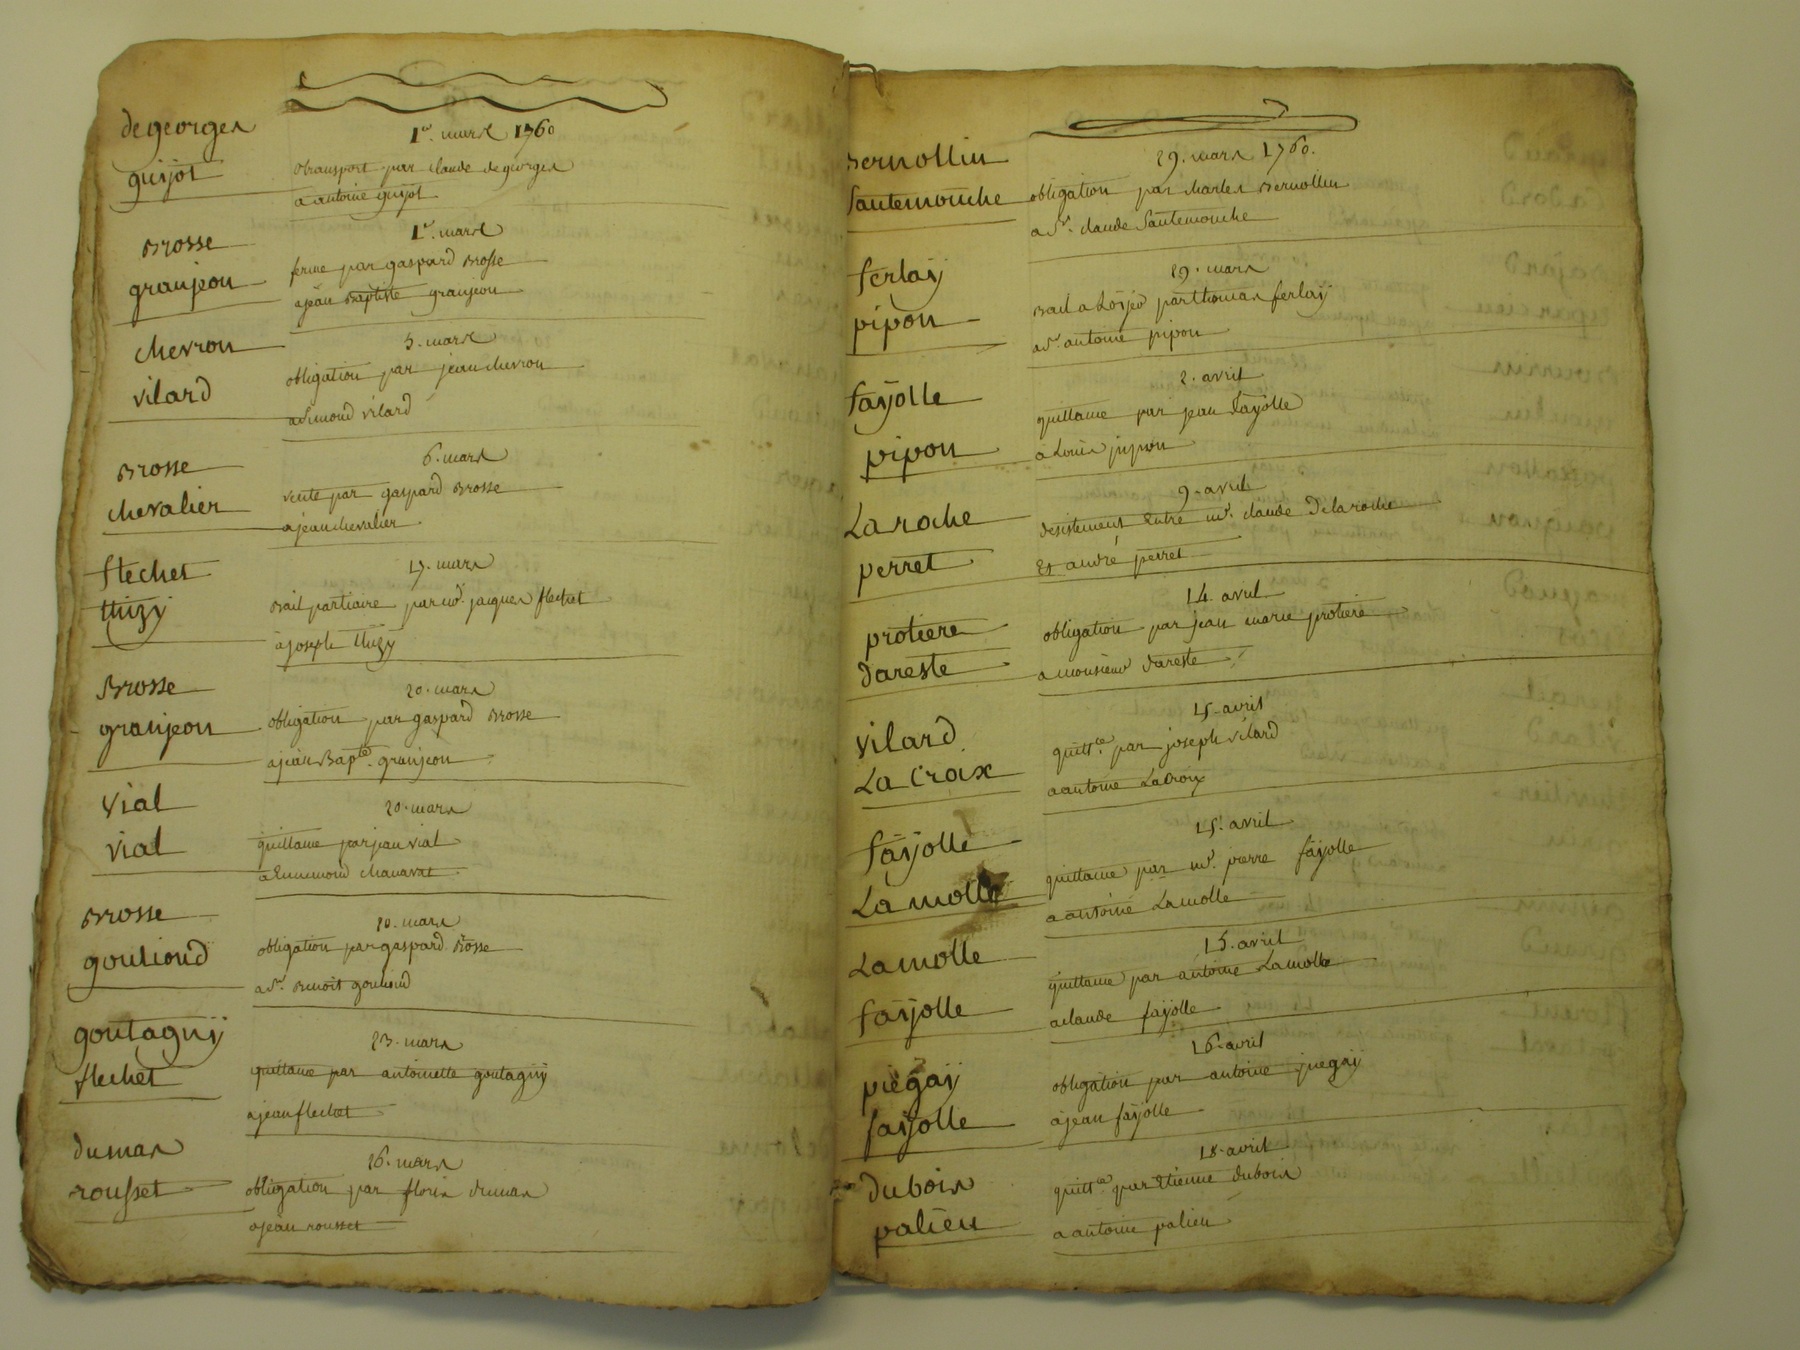 degeorges
guijot
1er. mars 1760
transport par claude degeorges
a antoine guijot
Brosse
granjeon
1er. mars
ferme par gaspard Brosse
a jean Baptiste granjeon
chevron
vilard
5. mars
obligation par jean chevron
a vilard
Brosse
chevalier
6. mars
vente par gaspard Brosse
a jean chevalier
flechet
thizy
17. mars
Bail partiaire par mr. jacques flechet
a joseph thizy
Brosse
granjeon
20. mars
obligation par gaspard Brosse
a jean Bapte. granjeon
vial
vial
20. mars
quittance par jean vial
a Ennemond chavavat
Brosse
gouliond
20. mars
obligation par gaspard Brosse
a sr. Benoit gouliond
goutagny
flechet
23. mars
quittance par antoinette goutagny
a jean flechet
dumas
rousset
26. mars
obligation par floris dumas
a jean rousset
Bernollin
Santemouche
29. mars 1760.
obligation par charles Bernollin
a sr. claude Santemouche
ferlaÿ
pipon
29. mars
Bail a Loÿer par thomas ferlaÿ
a sr. antoine pipon
faÿolle
pipon
2. avril
quittance par jean faÿolle
a Louis pipon
La roche
perret
9. avril
desistement Entre mr. claude Delaroche
Et andré perret
protiere
dareste
14. avril
obligation par jean marie protiere
a monsieur dareste
vilard
La Croix
15. avril
quittce. par joseph vilard
a antoine La Croix
faÿolle
La molle
15. avril
quittance par mr. pierre faÿolle
a antoine Lamolle
Lamolle
faÿolle
15. avril
quittance par antoine Lamolle
a claude faÿolle
piegaÿ
faÿolle
16. avril
obligation par antoine piegaÿ
a jean faÿolle
dubois
palieu
18. avril
quittce. par Etienne dubois
a antoine palieu